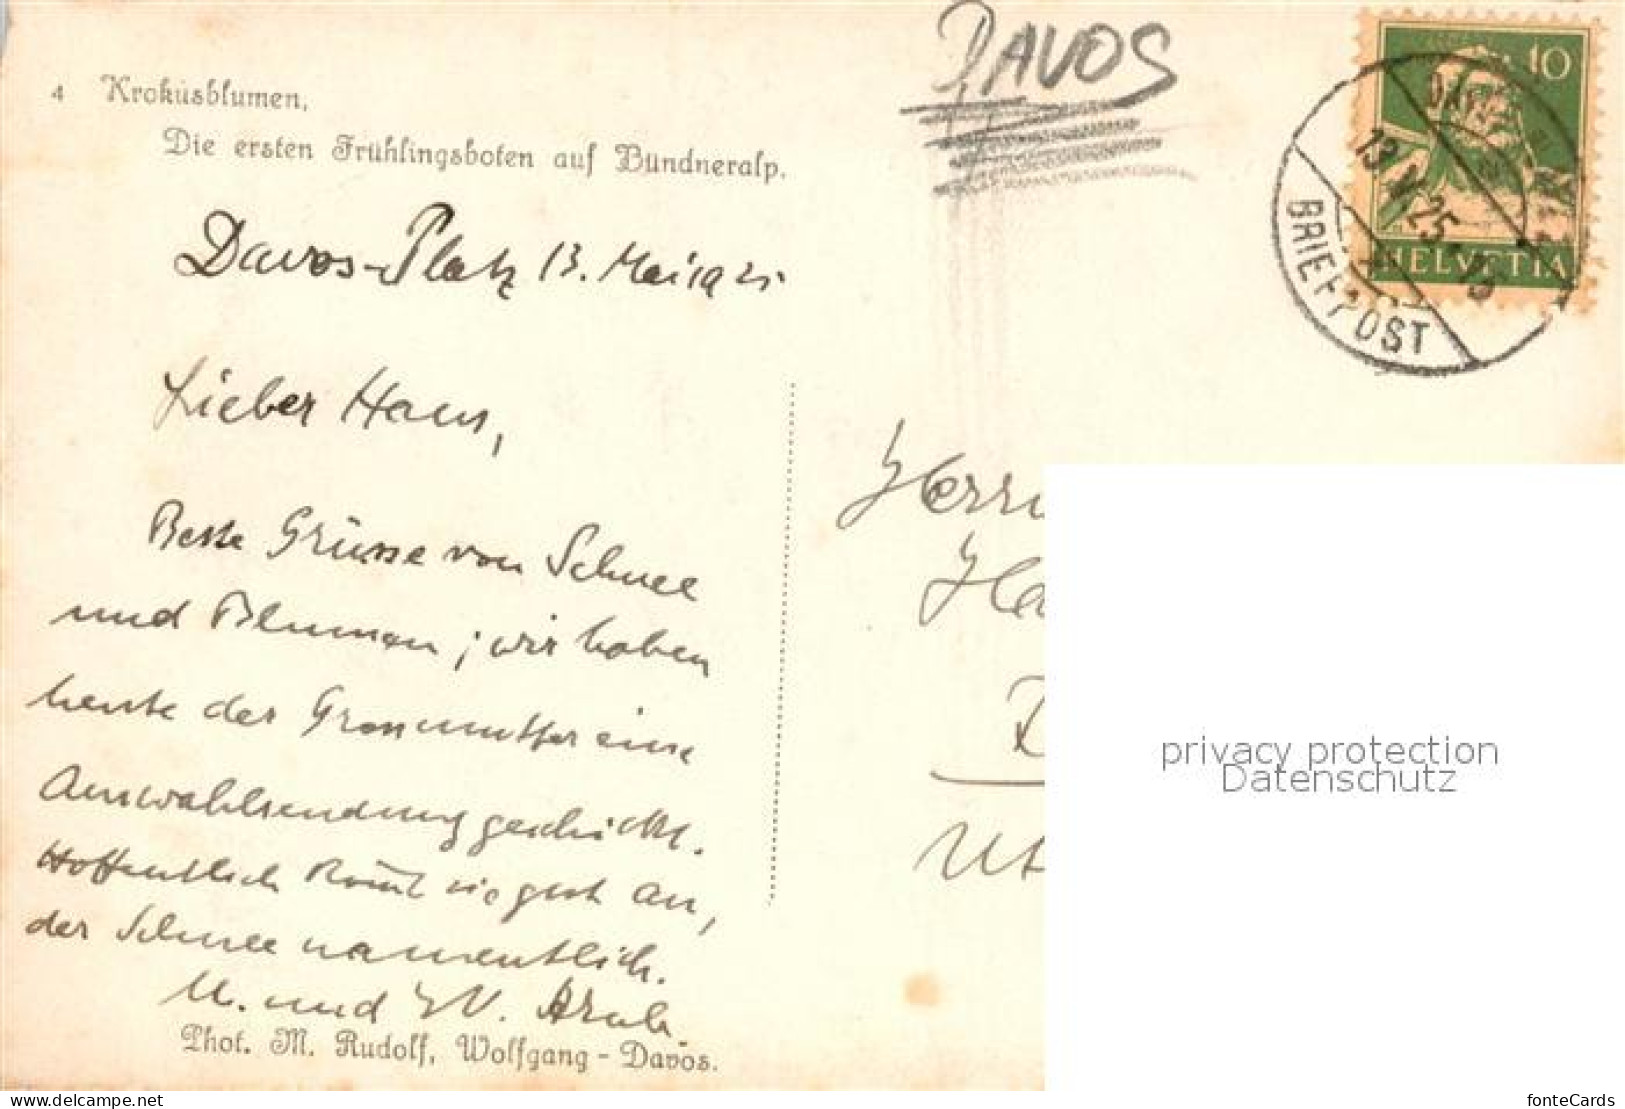 DAVOS
10
13 V 25
HELVETIA
BRIEFPOST
4 Krokusblumen,
Die ersten Frühlingsboten auf Bündneralp.
Davos-Platz 13. Mai 1925
Lieber Hans,
Beste Grüsse von Schnee
und Blumen; wir haben
heute der Grossmutter eine
Auswahlsendung geschickt.
Hoffentlich kommt sie gut an,
der Schnee namentlich.
und
Phot. M. Rudolf, Wolfgang - Davos.
Herrn
Ha
privacy protection
Datenschutz
delcampe.net
fonteCards